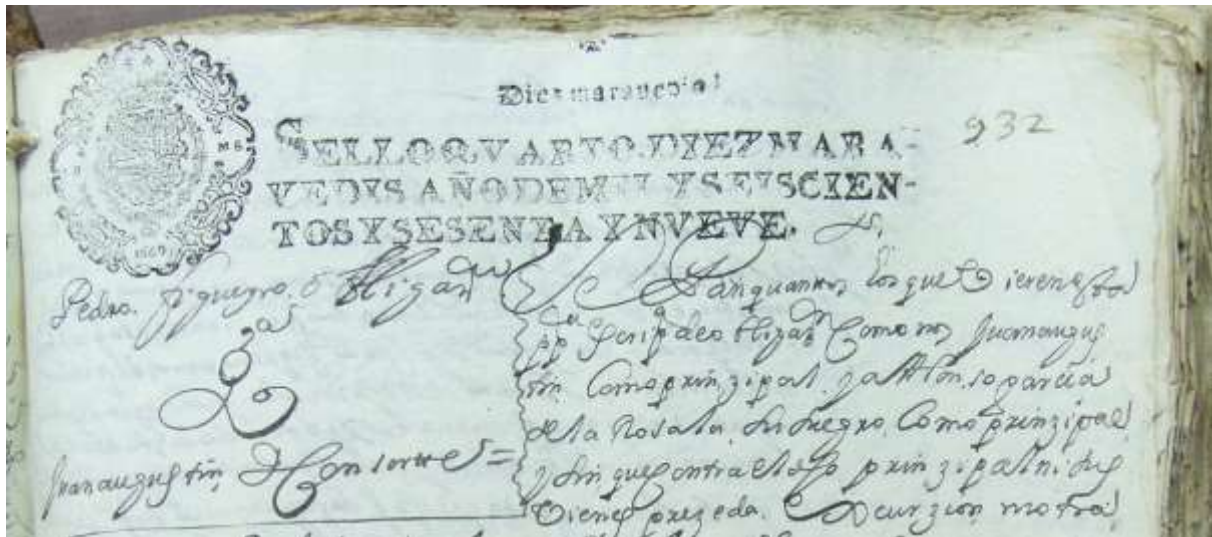 Diez maravedis
932
SELLO QVARTO, DIEZ MARA-
VEDIS, AÑO DE MIL Y SEISCIEN-
TOS Y SESENTA Y NVEVE.
1669
Pedro figuegro obligan
ga
Juan augustin & Consortes =
Sepan quantos los que Vieren esta
ppca escripa de obligan Como nos Juan augus
tin Como prinzipal y alonso garcia
de la Rosa la su suegro Como prinzipal
y sin que contra el dho prinzipal ni sus
Vienes prezeda excurzion nostra